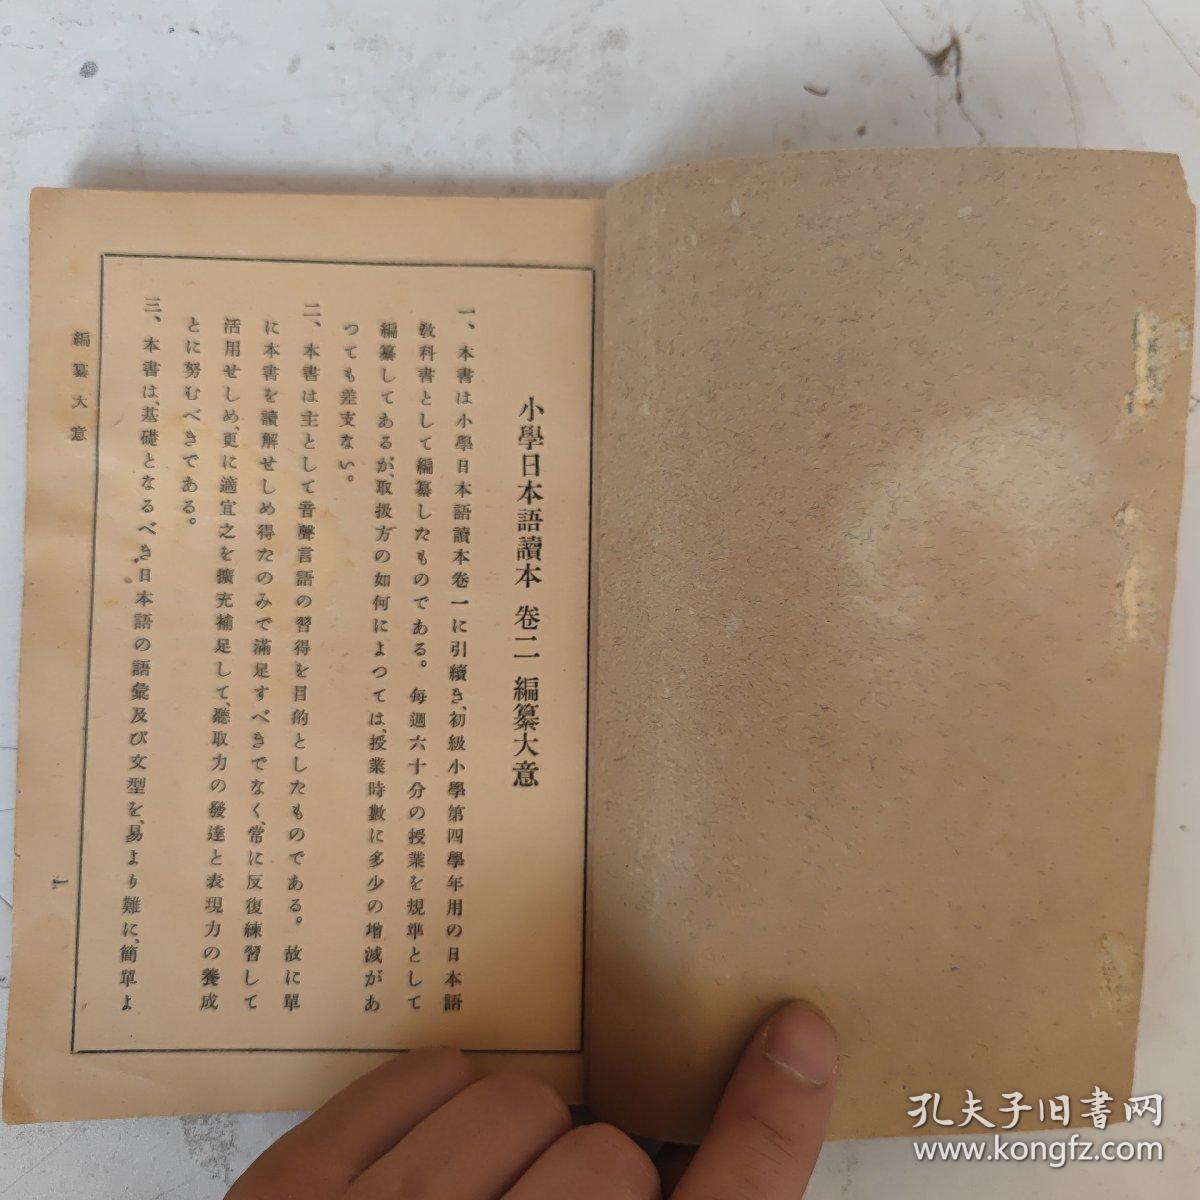 小學日本語讀本 卷二 編纂大意
一、本書は小學日本語讀本卷一に引續き、初級小學第四學年用の日本語
教科書として編纂したものである。每週六十分の授業を規準として
編纂してあるが、取扱方の如何によつては、授業時數に多少の增減があ
つても差支ない。
二、本書は主として音聲言語の習得を目的としたものである。故に單
に本書を讀解せしめ得たのみで滿足すべきでなく、常に反復練習して
活用せしめ、更に適宜之を擴充補足して、聽取力の發達と表現力の養成
とに努むべきである。
三、本書は、基礎となるべき日本語の語彙及び文型を、易より難に、簡單よ
編纂大意
一
孔夫子旧書网
www.kongfz.com